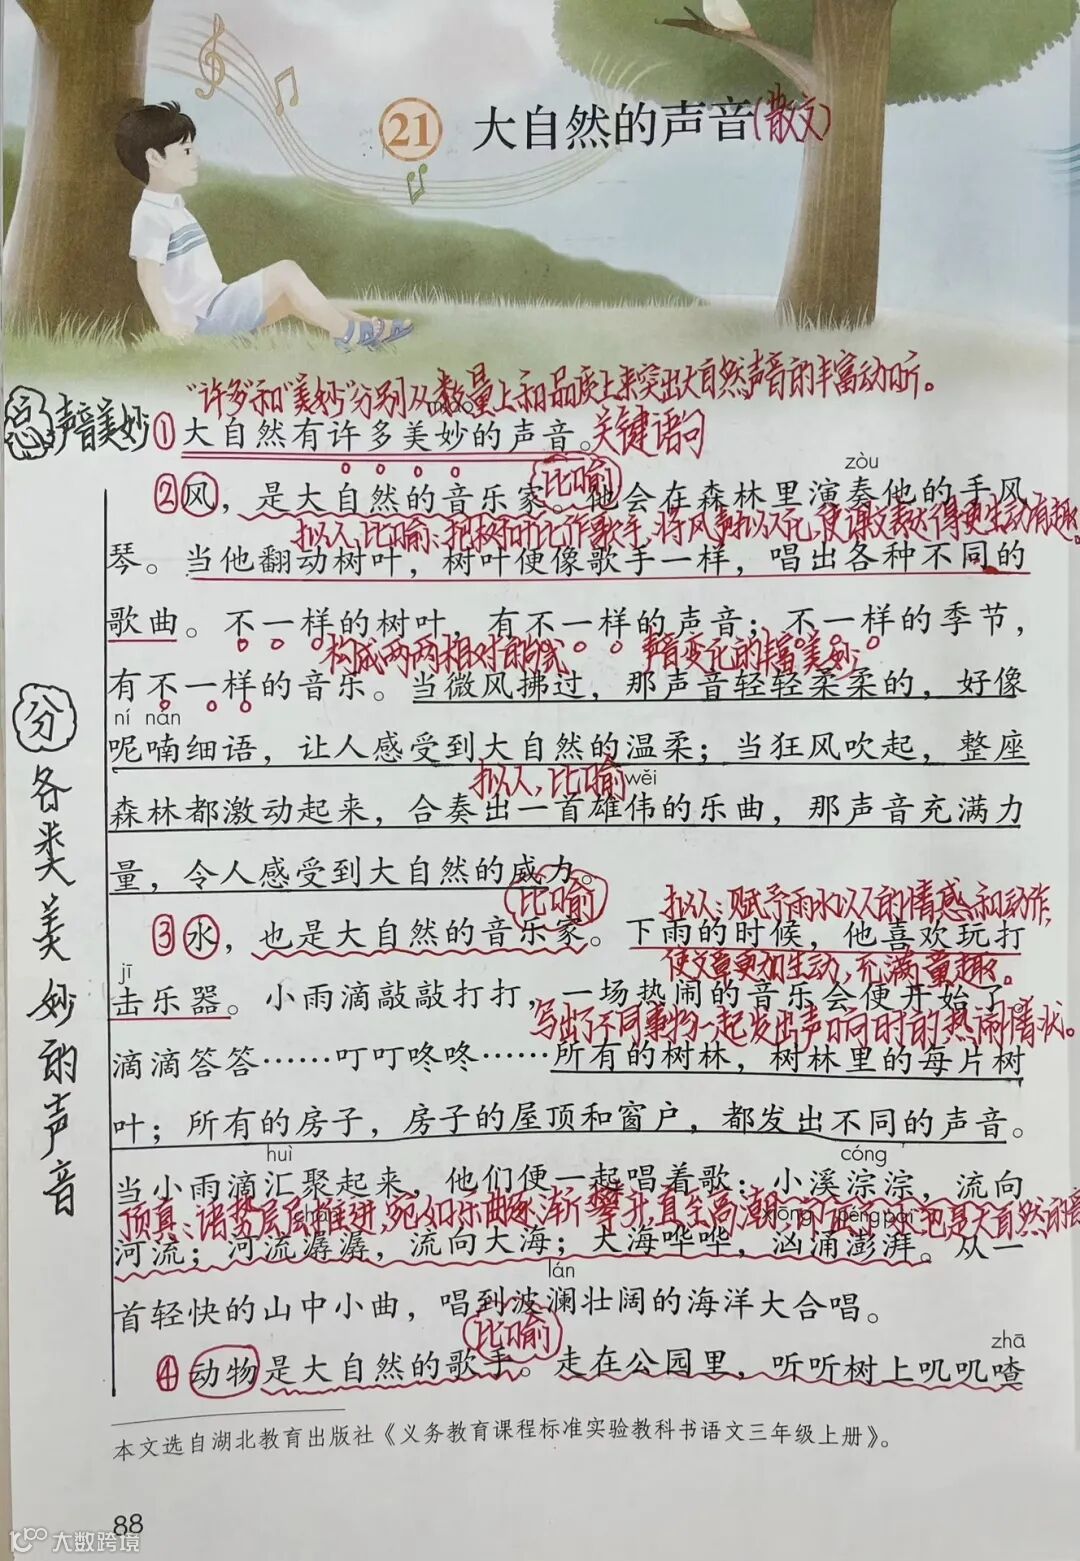 21 大自然的声音(散文)
"许多"和"美妙"分别从数量上和品质上来突出大自然声音的丰富动听。
总 声音美妙 ①大自然有许多美妙的声音。关键语句
比喻 zòu
②风，是大自然的音乐家。他会在森林里演奏他的手风
拟人、比喻：把树叶比作歌手，将风声拟人化，使课文表达得更生动有趣。
琴。当他翻动树叶，树叶便像歌手一样，唱出各种不同的
歌曲。不一样的树叶，有不一样的声音；不一样的季节，
构成两两相对的形式 声音变化的丰富美妙
有不一样的音乐。当微风拂过，那声音轻轻柔柔的，好像
ní nán
呢喃细语，让人感受到大自然的温柔；当狂风吹起，整座
拟人、比喻 wěi
森林都激动起来，合奏出一首雄伟的乐曲，那声音充满力
量，令人感受到大自然的威力。
比喻 拟人：赋予雨水以人的情感和动作，
③水，也是大自然的音乐家。下雨的时候，他喜欢玩打
使文章更加生动，充满童趣。
jī
击乐器。小雨滴敲敲打打，一场热闹的音乐会便开始了。
写出了不同事物一起发出声响时的热闹情状。
滴滴答答……叮叮咚咚……所有的树林，树林里的每片树
叶；所有的房子，房子的屋顶和窗户，都发出不同的声音。
huì cóng
当小雨滴汇聚起来，他们便一起唱着歌：小溪淙淙，流向
顶真：诸势层层推进，宛如乐曲逐渐攀升直至高潮，
xiōng péngpài
河流；河流潺潺，流向大海；大海哗哗，汹涌澎湃。从一
lán
首轻快的山中小曲，唱到波澜壮阔的海洋大合唱。
比喻 zhā
④动物是大自然的歌手。走在公园里，听听树上叽叽喳
分 各类美妙的声音
本文选自湖北教育出版社《义务教育课程标准实验教科书语文三年级上册》。
88
大数跨境